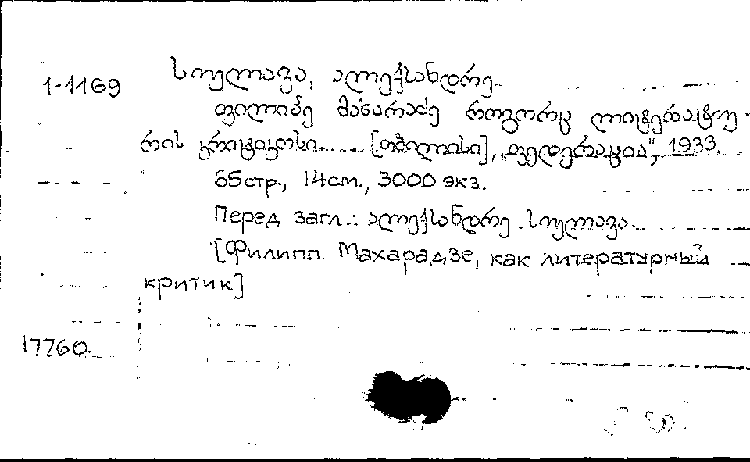 1-1169 სიულავა, ალექსანდრე.
ფილიპე მახარაძე როგორც ლიტერატუ-
რის კრიტიკოსი..... [თბილისი], „ფედერაცია", 1933.
65 стр., 14 см., 3000 экз.
Перед загл.: ალექსანდრე სიულავა.
[Филипп Махарадзе, как литературный
критик]
17760